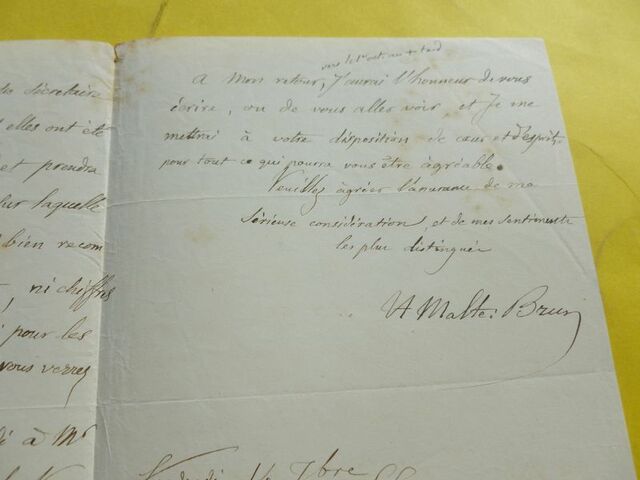 secretaire
elles ont été
et prendra
sur laquelle
bien recom
, ni chiffres
pour les
vous verrez
à Mr
vers le 1er oct. au + tard
A mon retour, J'aurai l'honneur de vous
écrire, ou de vous aller voir, et Je me
mettrai à votre disposition de cœur et d'esprit,
pour tout ce qui pourra vous être agréable.
Veuillez agréer l'assurance de ma
sérieuse considération, et de mes sentiments
les plus distingués
VA Malte-Brun
7bre